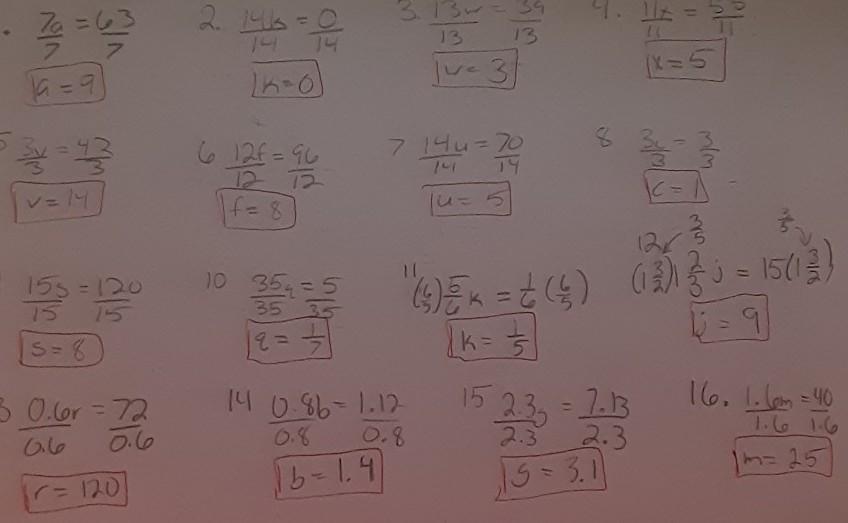 7a/7 = 63/7
a = 9
2. 14k/14 = 0/14
k = 0
3. 13v/13 = 39/13
v = 3
4. 11x/11 = 55/11
x = 5
5 3v/3 = 42/3
v = 14
6 12f/12 = 96/12
f = 8
7 14u/14 = 70/14
u = 5
8 3c/3 = 3/3
c = 1
15s/15 = 120/15
s = 8
10 35q/35 = 5/35
q = 1/7
11 (6/5) 5/6 k = 1/6 (6/5)
k = 1/5
12 3/5 3/5
(1 3/2) 1 2/3 j = 15 (1 3/2)
j = 9
3 0.6r/0.6 = 72/0.6
r = 120
14 0.8b/0.8 = 1.12/0.8
b = 1.4
15 2.3g/2.3 = 7.13/2.3
g = 3.1
16. 1.6m/1.6 = 40/1.6
m = 25